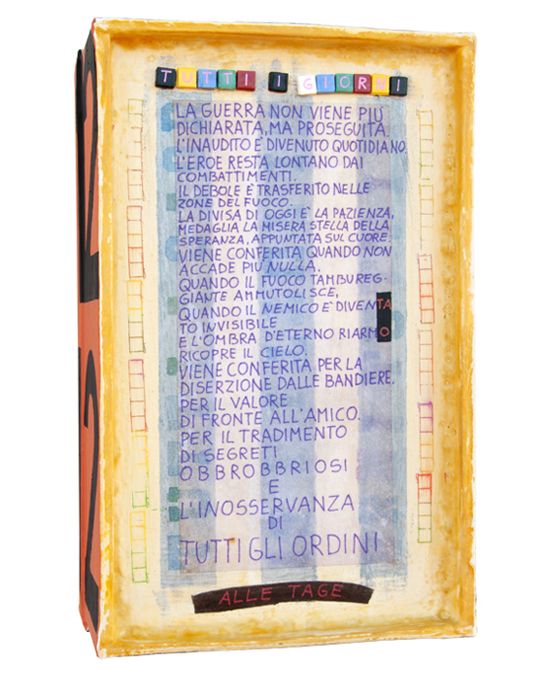 TUTTI I GIORNI
LA GUERRA NON VIENE PIÙ
DICHIARATA, MA PROSEGUITA.
L'INAUDITO È DIVENUTO QUOTIDIANO.
L'EROE RESTA LONTANO DAI
COMBATTIMENTI.
IL DEBOLE È TRASFERITO NELLE
ZONE DEL FUOCO.
LA DIVISA DI OGGI È LA PAZIENZA,
MEDAGLIA LA MISERA STELLA DELLA
SPERANZA, APPUNTATA SUL CUORE.
VIENE CONFERITA QUANDO NON
ACCADE PIÙ NULLA.
QUANDO IL FUOCO TAMBUREG-
GIANTE AMMUTOLISCE,
QUANDO IL NEMICO È DIVENTA
TO INVISIBILE
E L'OMBRA D'ETERNO RIARMO
RICOPRE IL CIELO.
VIENE CONFERITA PER LA
DISERZIONE DALLE BANDIERE.
PER IL VALORE
DI FRONTE ALL'AMICO.
PER IL TRADIMENTO
DI SEGRETI
OBBROBBRIOSI
E
L'INOSSERVANZA
DI
TUTTI GLI ORDINI
ALLE TAGE